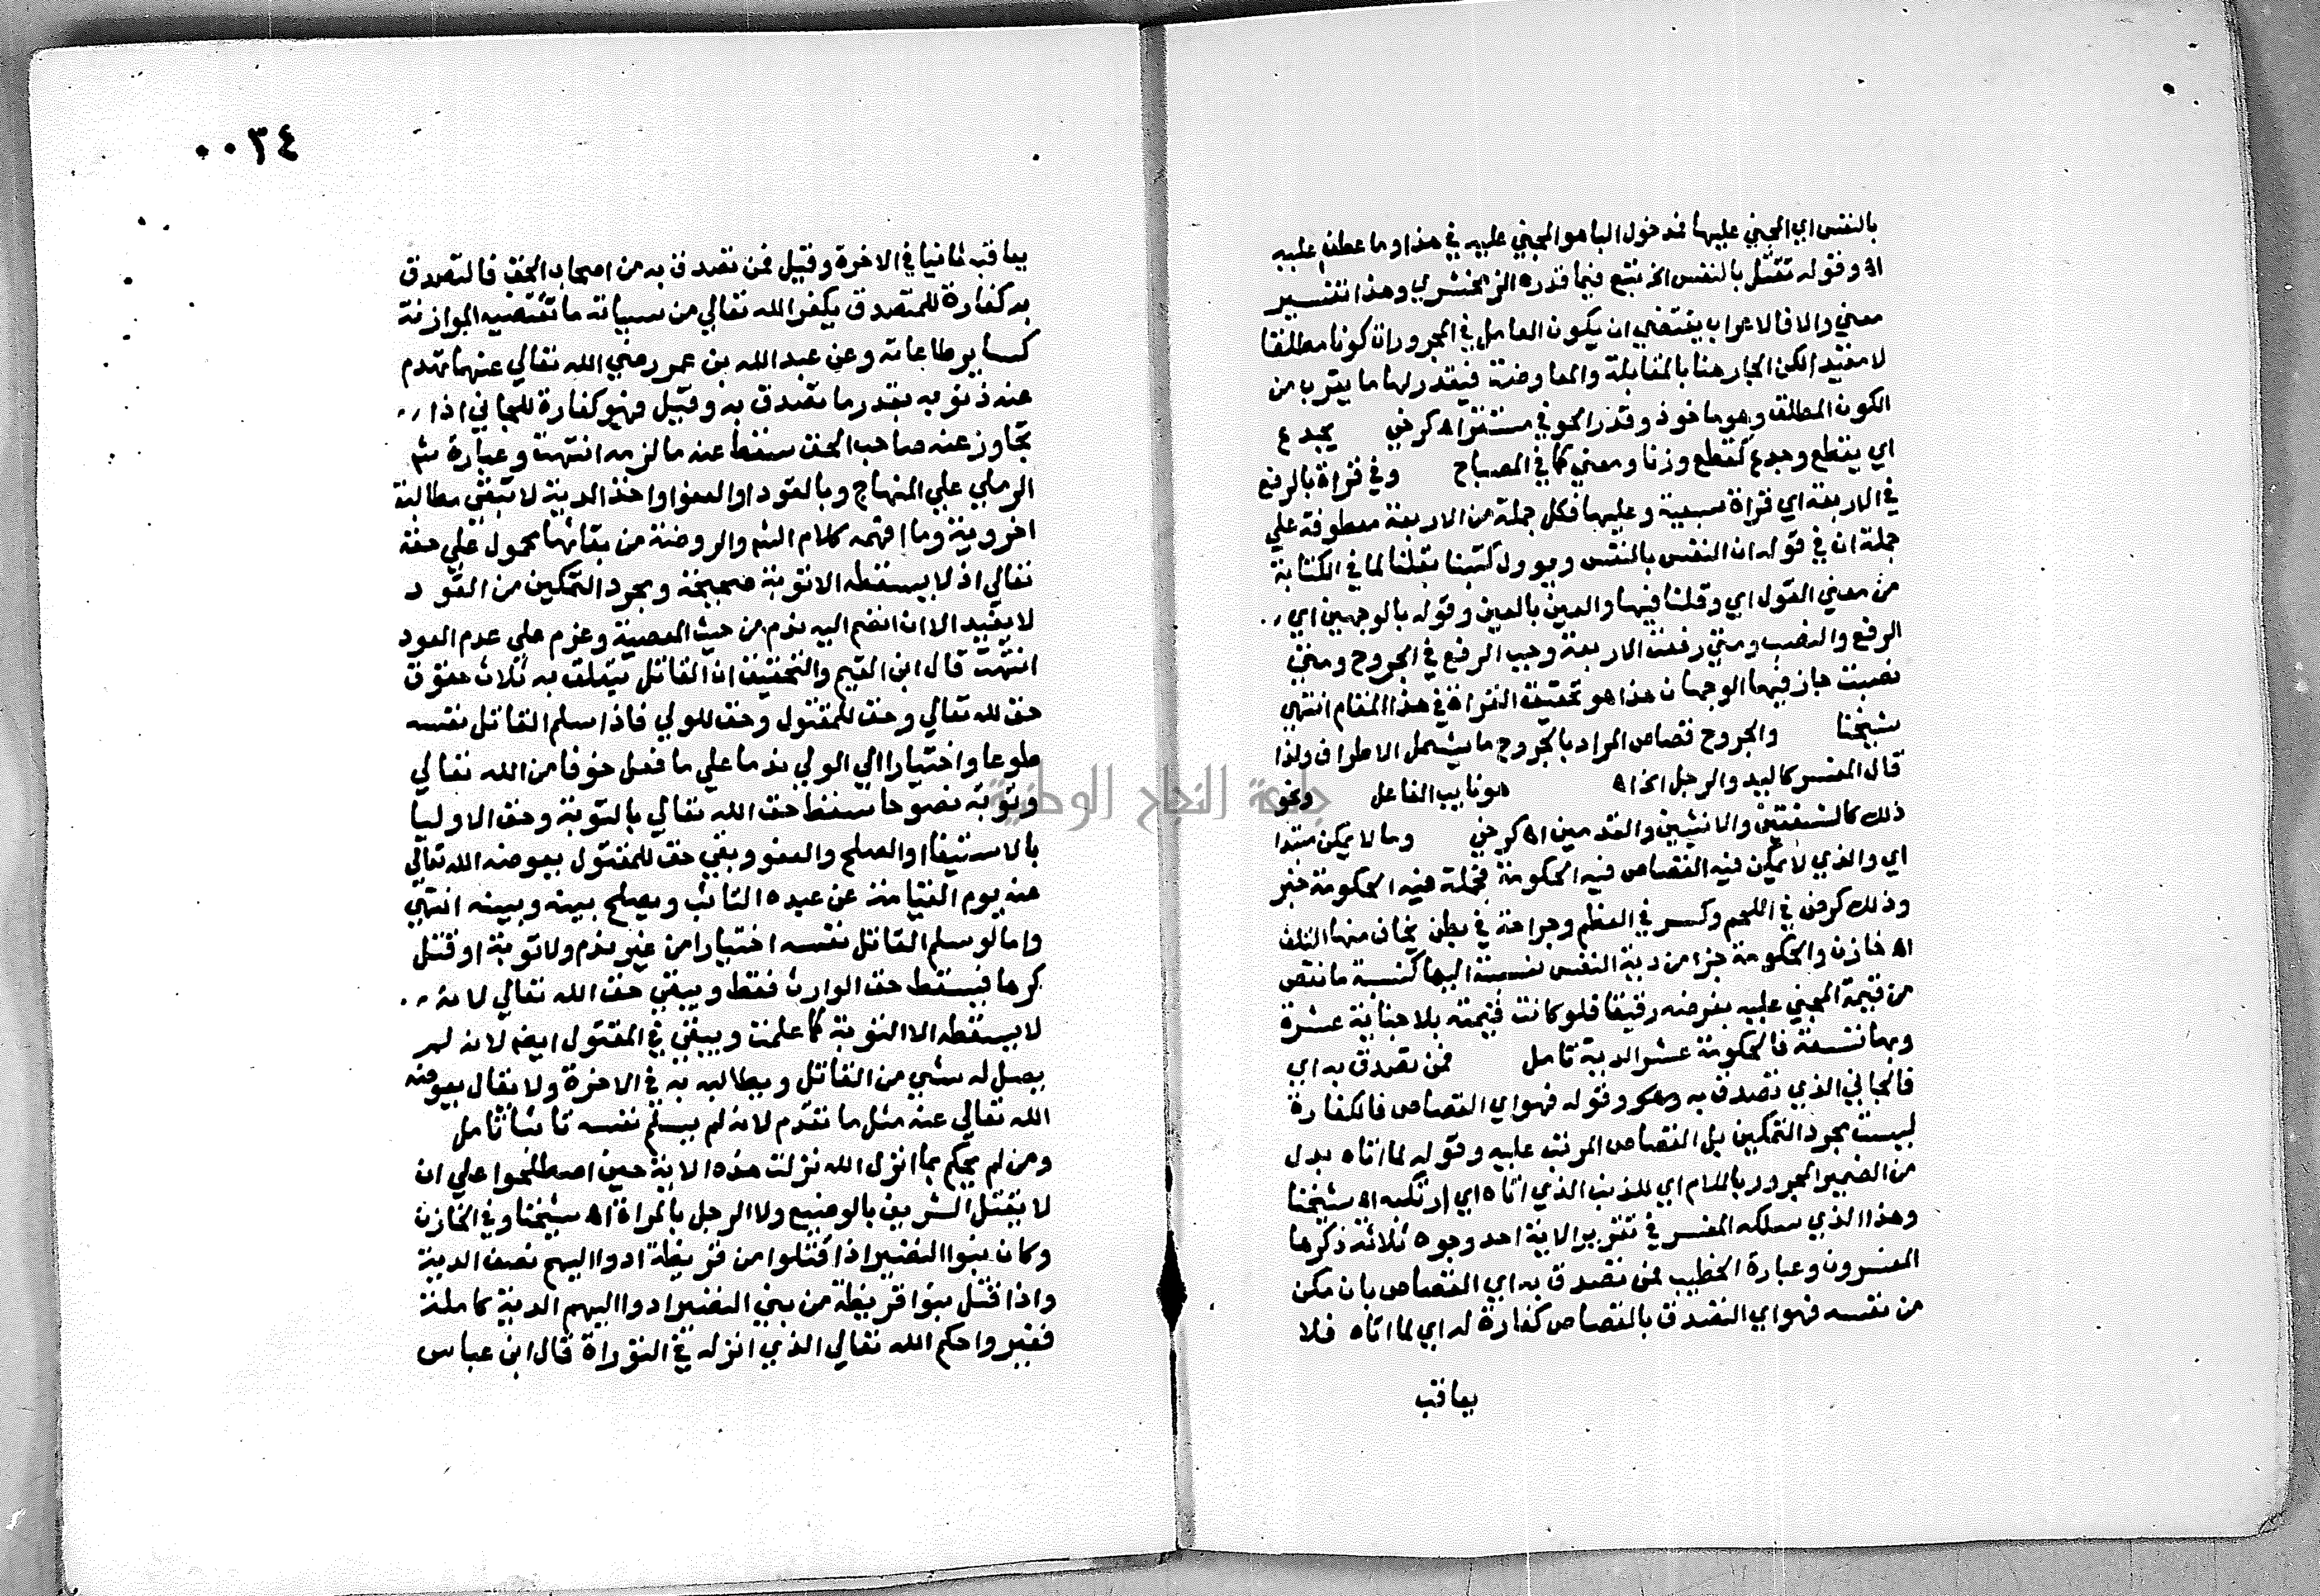 بالنفس اي المجني عليها فدخول البا هو المجني عليه في هذا وما عطف عليه
اه وقوله تقتل بالنفس الخ تبع فيما قدره الزمخشري وهذا تفسير
معني والا فالاعراب يقتضي ان يكون العامل في المجرور ان كونا مطلقا
لا مقيدا لكن الجار هنا بالمقابلة والمعاوضة فيقدر لها ما يقرب من
الكون المطلق وهو ماخوذ وقدر الحوفي مستقر اه كرخي يجدع
اي يقطع وجدع كقطع وزنا ومعني كما في المصباح وفي قراة بالرفع
في الاربعة اي قراة سبعية وعليها فكل جملة من الاربعة معطوفة علي
جملة ان في قوله ان النفس بالنفس ويوول كتبنا بقلنا لما في الكتابة
من معني القول اي وقلنا فيها والعين بالعين وقوله بالوجهين اي
الرفع والنصب ومتي رفعت الاربعة وجب الرفع في الجروح ومتي
نصبت جاز فيها الوجهان هذا هو تحقيقه القراة في هذا المقام انتهي
شيخنا والجروح قصاص المراد بالجروح ما يشمل الاطراف ولذا
قال المفسر كاليد والرجل الخ اه هو نايب الفاعل ونحو
ذلك كالشفتين والانثيين والقدمين اه كرخي وما لا يمكن مبتدا
اي والذي لا يمكن فيه القصاص فيه الحكومة فجملة فيه الحكومة خبر
وذلك كرض في اللحم وكسر في العظم وجراحة في بطن يخاف منها التلف
اه خازن والحكومة جزا من دية النفس نسبته اليها كنسبة ما نقص
من قيمة المجني عليه بفرضه رقيقا فلو كانت قيمته بلا جناية عشرة
وبها تسعة فالحكومة عشر الدية تامل فمن تصدق به اي
فالجاني الذي تصدق به وقوله فهو اي القصاص فالكفارة
ليست بمجرد التمكين بل القصاص المرتب عليه وقوله لما اتاه بدل
من الضمير المجرور باللام اي للذنب الذي اتاه اي ارتكبه اه شيخنا
وهذا الذي سلكه المفسر في تقرير الاية احد وجوه ثلاثة ذكرها
المفسرون وعبارة الخطيب فمن تصدق به اي القصاص بان مكن
من نفسه فهو اي التصدق بالقصاص كفارة له اي لما اتاه فلا
يعاقب
٠٠٣٤
يعاقب ثانيا في الاخرة وقيل فمن تصدق به من اصحاب الحق فالتصدق
به كفارة للمتصدق يكفر الله تعالي من سيياته ما تقتضيه الموازنة
كساير طاعاته وعن عبد الله بن عمر رضي الله تعالي عنهما تهدم
عنه ذنوبه بقدر ما تصدق به وقيل فهو كفارة للجاني اذا
تجاوز عنه صاحب الحق سقط عنه ما لزمه انتهت وعبارة شم
الرملي علي المنهاج وبالقود او العفو او اخذ الدية لا تبقي مطالبة
اخروية وما افهمه كلام الشم والروضة من بقائها محمول علي حقه
تعالي اذ لا يسقطه الا توبة صحيحة ومجرد التمكين من القود
لا يفيد الا ان انضم اليه ندم من حيث المعصية وعزم علي عدم العود
انتهت قال ابن القيم والتحقيق ان القاتل يتعلق به ثلاث حقوق
حق لله تعالي وحق للمقتول وحق للولي فاذا سلم القاتل نفسه
طوعا واختيارا الي الولي ندما علي ما فعل خوفا من الله تعالي
وتوبة نصوحا سقط حق الله تعالي بالتوبة وحق الاوليا
بالاستيفا او الصلح والعفو وبقي حق للمقتول يعوضه الله تعالي
عنه يوم القيامة عن عبده التائب ويصلح بينه وبينه انتهي
واما لو سلم القاتل نفسه اختيارا من غير ندم ولا توبة او قتل
كرها فيسقط حق الوارث فقط ويبقي حق الله تعالي لانه
لا يسقطه الا التوبة كما علمت ويبقي في المقتول ايضا لانه لم
يصل له شي من القاتل ويطالبه به في الاخرة ولا يقال يعوضه
الله تعالي عنه مثل ما تقدم لانه لم يسلم نفسه تائبا تامل
ومن لم يحكم بما انزل الله نزلت هذه الاية حين اصطلحوا علي ان
لا يقتل الشريف بالوضيع ولا الرجل بالمراة اه شيخنا وفي الخازن
وكان بنوا النضير اذا قتلوا من قريظة ادوا اليهم نصف الدية
واذا قتل بنوا قريظة من بني النضير ادوا اليهم الدية كاملة
فغيروا حكم الله تعالي الذي انزله في التوراة قال ابن عباس
جامعة النجاح الوطنية